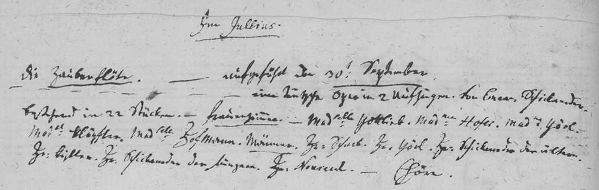 Im Jullius.
die Zauberflöte. — aufgeführt den 30:t September.
eine teutsche Oper in 2 Aufzügen. von Eman. Schickaneder.
bestehend in 22 Stücken. — frauenzimmer. — Mad:selle Gottlieb. Mad:me Hofer. Mad:me Görl.
Mad:selle Klöpfler. Mad:selle Hofmann. Männer. Hr: Schack. Hr: Görl. Hr: Schickaneder der ältere.
Hr: Kistler. Hr: Schickaneder der Jüngere. Hr: Nouseul. — Chöre.